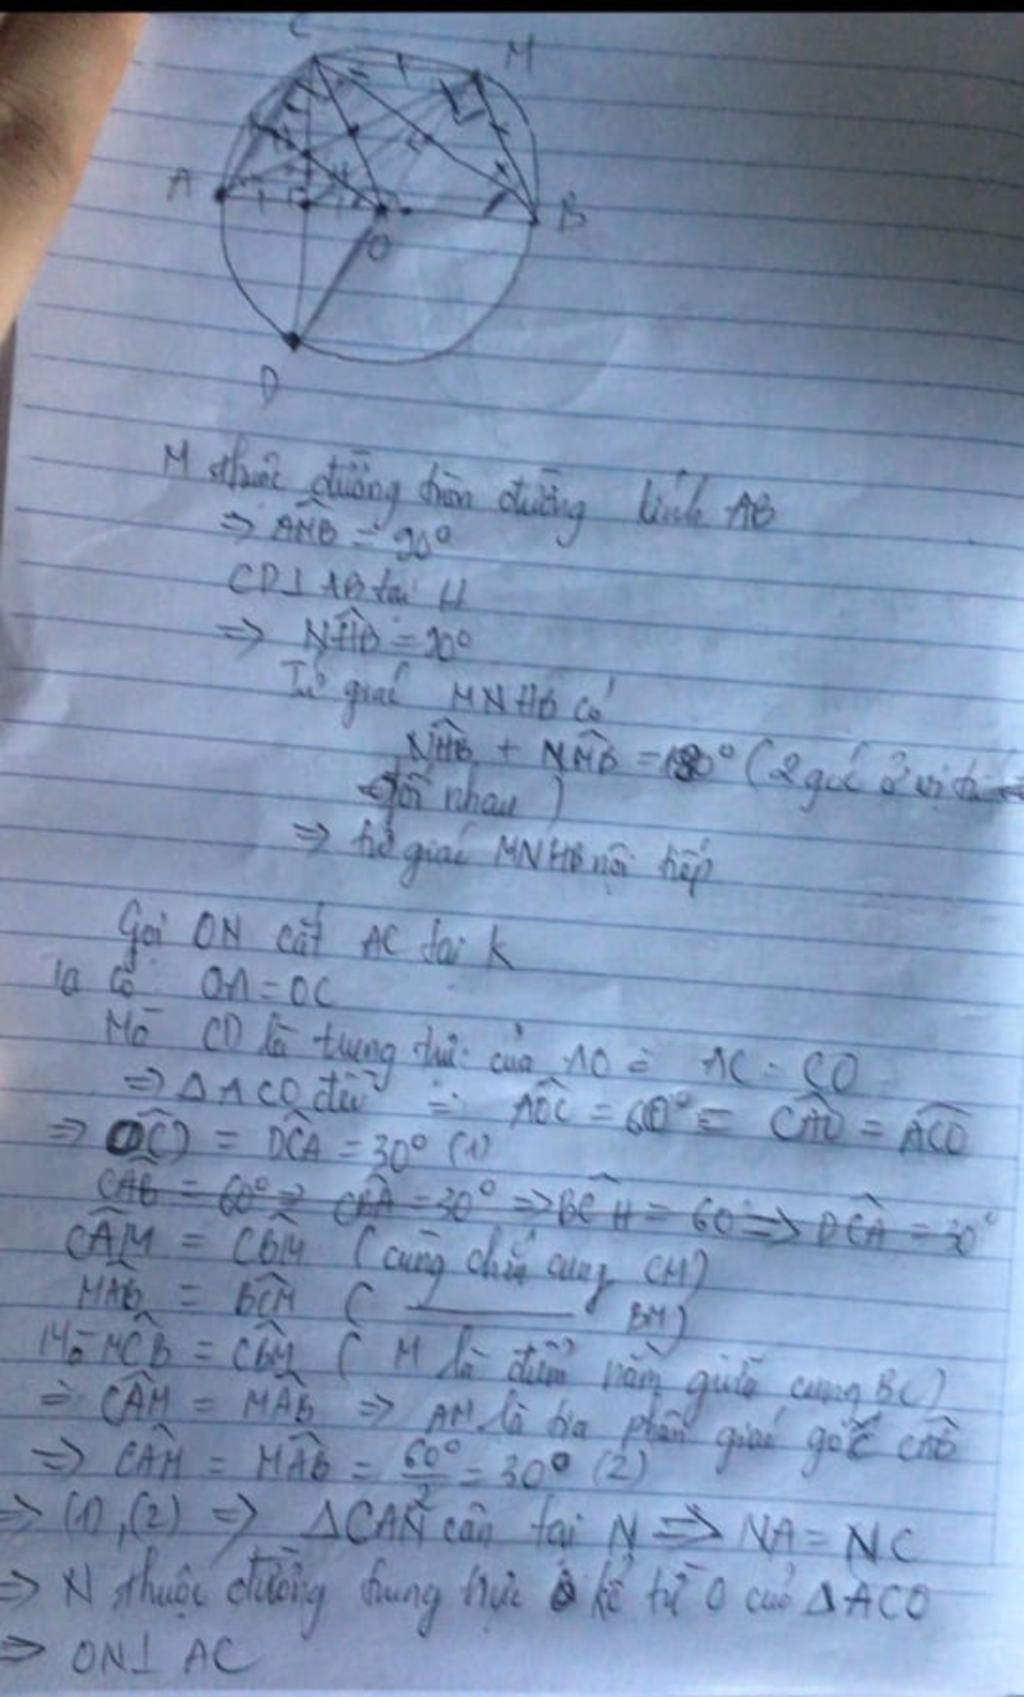 C
M
A
B
O
D
M thuộc đường tròn đường kính AB
⇒ AMB = 90°
CD⊥AB tại H
⇒ NHB = 90°
Tứ giác MNHB có
NHB + NMB = 180° (2 góc ở vị trí
đối nhau)
⇒ tứ giác MNHB nội tiếp
Gọi ON cắt AC tại K
Ta có OA = OC
Mà CD là trung trực của AO ⇒ AC = CO
⇒ ΔACO đều ⇒ AOC = 60° = CAO = ACO
⇒ OCD = DCA = 30° (1)
CAB = 60° ⇒ CBA = 30° ⇒ BCH = 60 ⇒ DCA = 30°
CAM = CBM (cùng chắn cung CM)
MAB = BCM ( ———— BM)
Mà MCB = CBM ( M là điểm nằm giữa cung BC)
⇒ CAM = MAB ⇒ AM là tia phân giác góc CAB
⇒ CAM = MAB = 60°/2 = 30° (2)
⇒ (1), (2) ⇒ ΔCAN cân tại N ⇒ NA = NC
⇒ N thuộc đường trung trực kẻ từ O của ΔACO
⇒ ON⊥AC